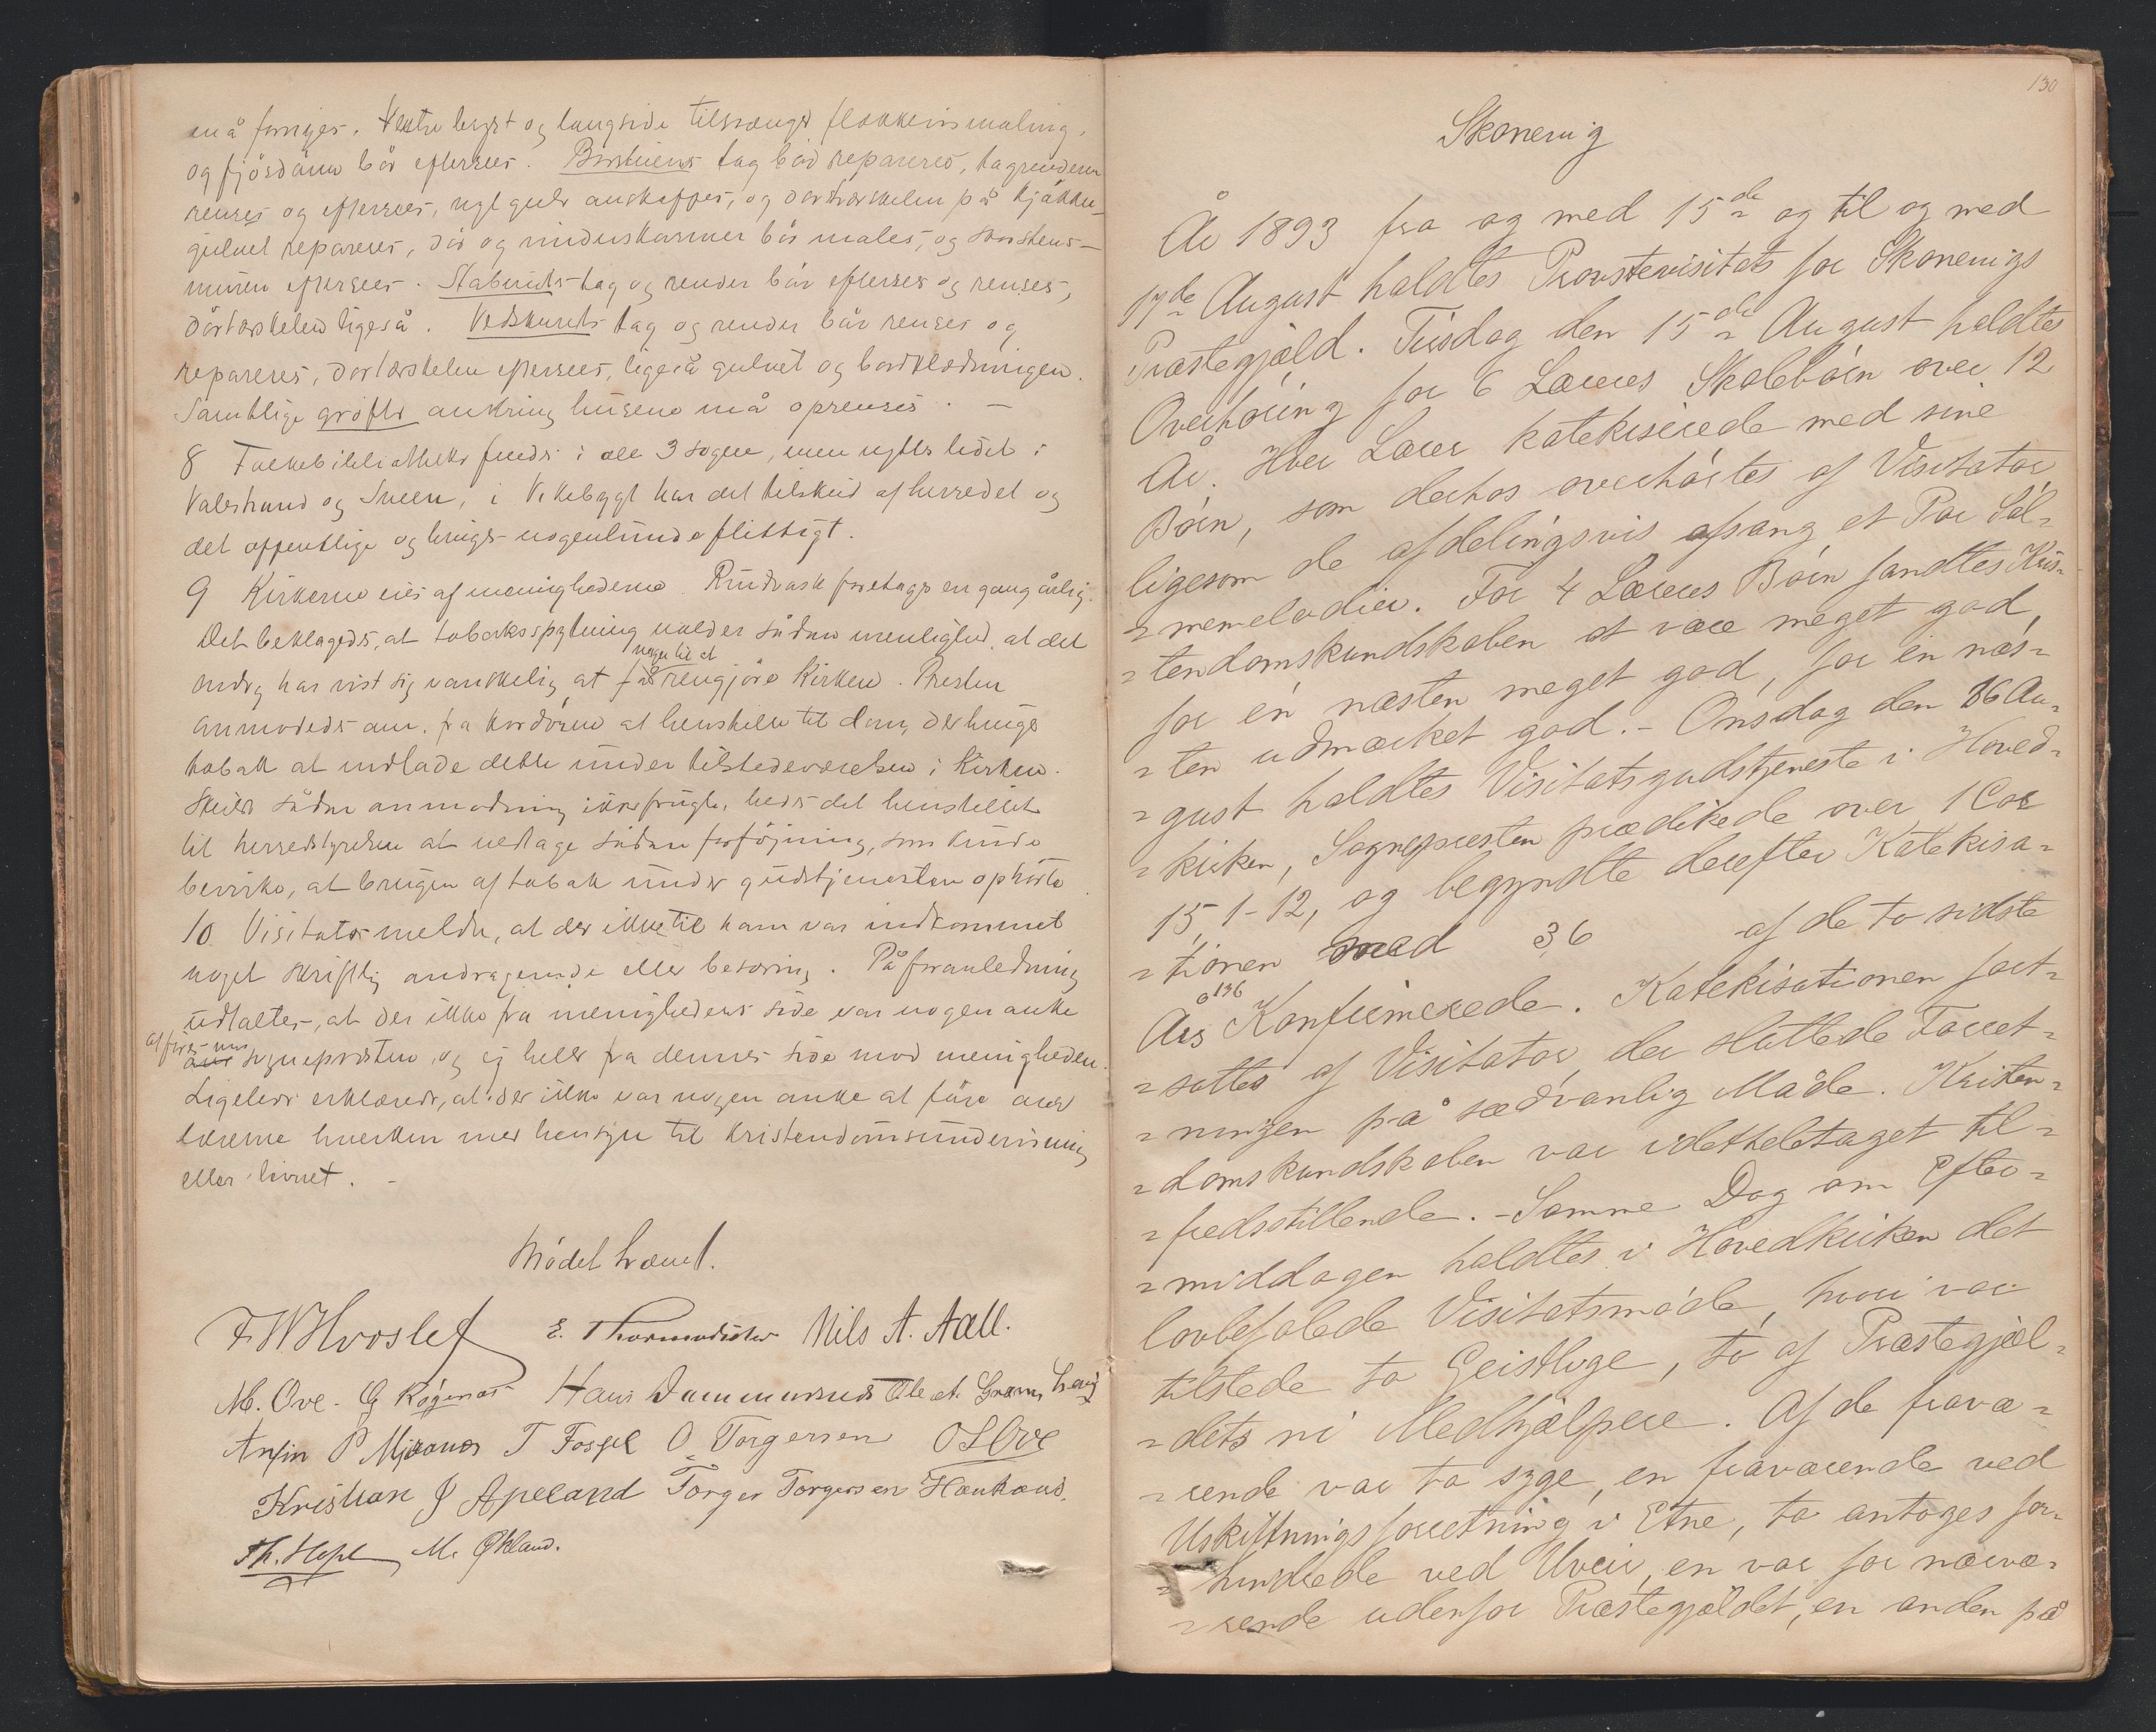 må fornyes. Vestre bryst og langside tilsvænges flokkevismaling,
og fjösdören bör eftersees. Borstuens tag bör repareres, tagrenderne
renses og eftersees, nyt gulv anskaffes, og dörtærskelen på kjökken-
gulvet repareres, dör og vinduskarmer bör males, og skorstens-
muren eftersees. Staburets tag og render bör eftersees og renses,
dörtærskelen ligeså. Vedskurets tag og render bör renses og
repareres, dörtærskelen eftersees, ligeså gulvet og bordklædningen.
Samtlige gröfter omkring husene må oprenses. —
8 Folkebibliotheker findes i alle 3 sogne, men nyttes lidet i
Valestrand og Sveen, i Vikebygt har det tilskud af herredet og
det offentlige og bruges nogenlunde flittigt.
9 Kirkerne eies af menighederne. Rundvask foretages en gang årlig.
Det beklagedes, at tobaksspytning volder sådan urenlighed, at det
endog har vist sig vanskelig at få nogen til at rengjöre Kirken. Presten
anmodedes om, fra kordören at henstille til dem, der bruger
tobak at undlade dette under tilstedeværelsen i Kirken.
Skulde sådan anmodning ikke frugte, bedes det henstillet
til herredstyrelsen at vedtage sådan forföjning, som kunde
bevirke, at brugen af tobak under gudstjenesten ophörte.
10 Visitator meldte, at der ikke til ham var indkommet
noget skriftlig andragende eller besværing. På foranledning
udtaltes, at der ikke fra menighedens side var nogen anke
at före mod sognepresten, og ej heller fra dennes side mod menigheden.
Ligeledes erklæredes, at der ikke var nogen anke at före over
lærerne hverken med hensyn til kristendomsundervisning
eller livnet. -
Mödet hævet.
F W Hvoslef E. Thormodsæter Nils A. Aall.
M. Ove. G Røgenæs Hans Dommersnes Ole A.
Anfin P Mjånæs T Fosse O. Torgersen O S Ove
Kristian J Apeland Torger Torgersen Haukaas.
Th. M. Økland.
130
Skonevig
År 1893 fra og med 15de og til og med
17de August holdtes Provstevisitats for Skonevigs
Præstegjæld. Tirsdag den 15de August holdtes
Overhöring for 6 Læreres Skolebörn over 12
År. Hver Lærer katekiserede med sine
Börn, som derhos overhörtes af Visitator
ligesom de afdelingsvis afsang et Par Sal=
=memelodier. For 4 Læreres Börn fandtes Kris=
=tendomskundskaben at være meget god,
for én næsten meget god, for én næs=
=ten udmærket god. – Onsdag den 16 Au=
=gust holdtes Visitatsgudstjeneste i Hoved=
=kirken, Sognepresten prædikede over 1 Cor
15, 1-12, og begyndte derefter Katekisa=
=tionen med 36 af de to sidste
136
Års Konfirmerede. Katekisationen fort=
=sattes af Visitator, der sluttede Forret=
=ningen på sædvanlig Måde. Kristen=
=domskundskaben var idetheletaget til=
=fredsstillende. – Samme Dag om Efter=
=middagen holdtes i Hovedkirken det
lovbefalede Visitatsmöde, hvor var
tilstede to Geistlige, to af Præstegjæl=
=dets ni Medhjælpere. Af de fravæ=
=rende var to syge, en fraværende ved
Udskiftningsforretning i Etne, to antoges for=
=hindrede ved Uveir, en var for nærvæ=
=rende udenfor Præstegjældet, en anden på